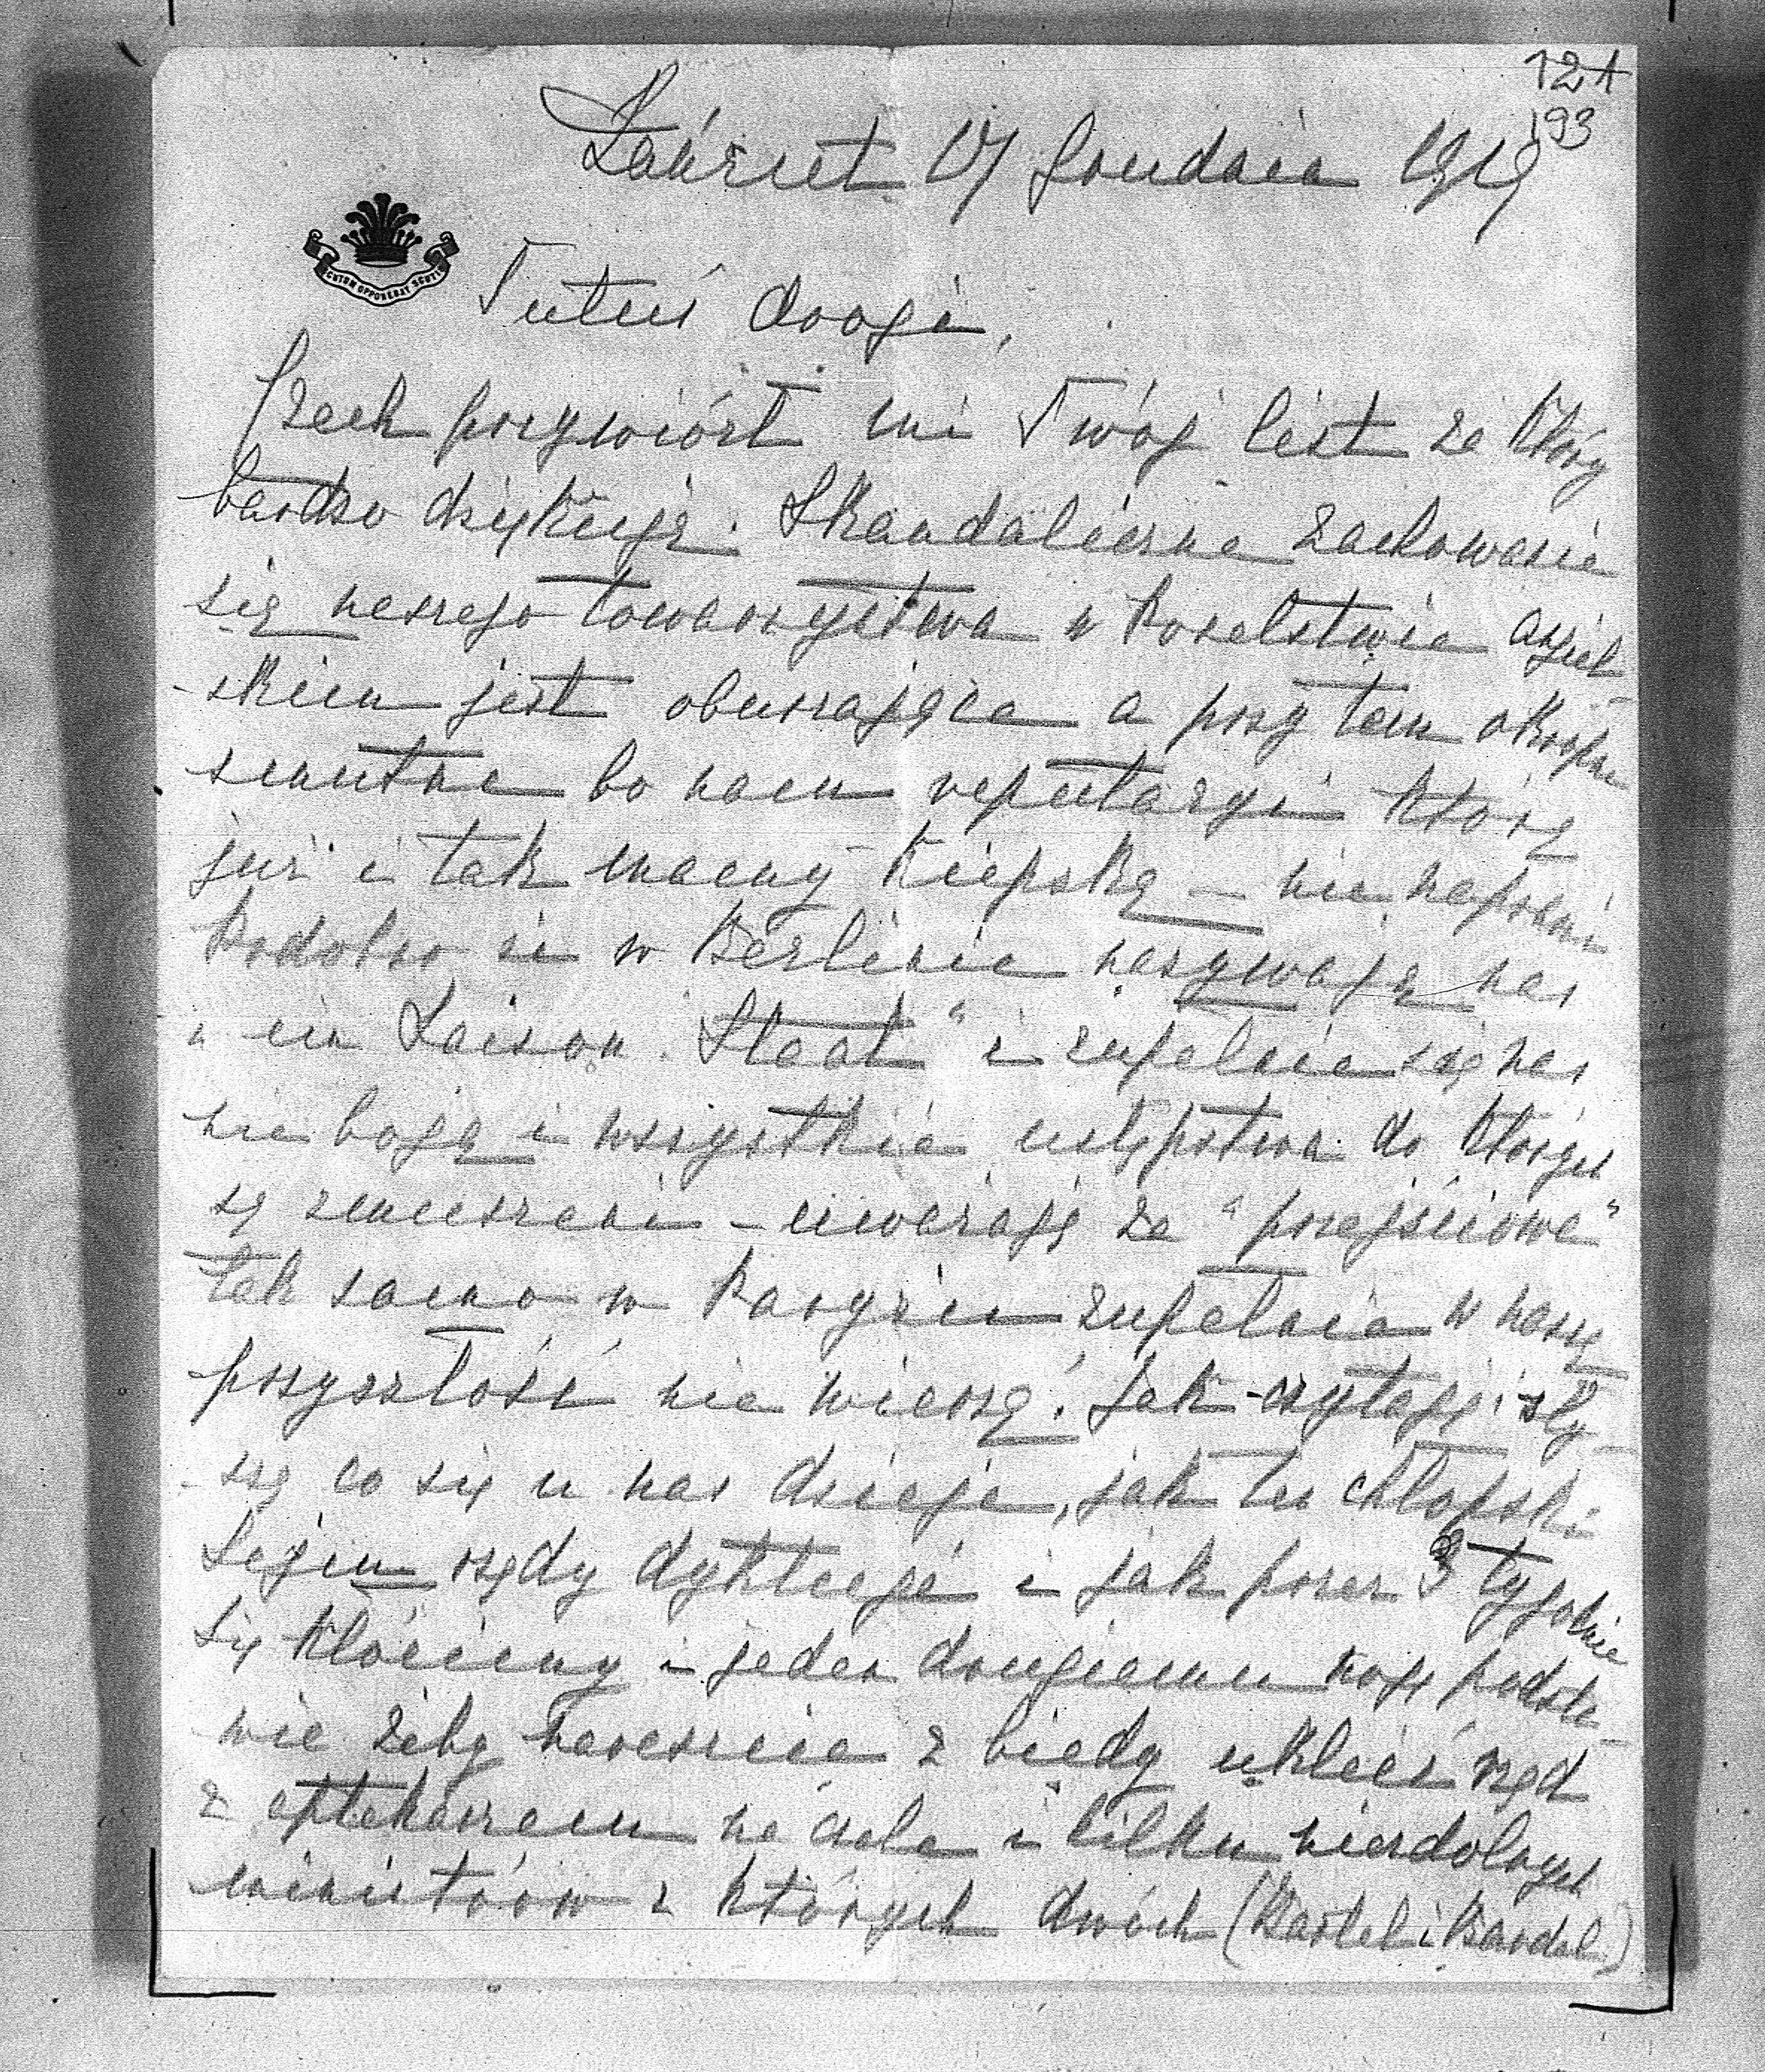 121
193
Łańcut 17 Grudnia 1919
SCUTUM OPPONEBAT SCUTIS
Tutuś drogi,
Czech przywiózł mi Twój list za który
bardzo dziękuję. Skandaliczne zachowanie
się naszego towarzystwa w Poselstwie angiel-
-skiem jest oburzające a przy tem okropnie
smutne bo nam reputazyi którą
już i tak mamy kiepską – nie naprawi
Podobno że w Berlinie nazywają nas
„ein Saison Staat" i zupełnie się nas
nie boją i wszystkie ustępstwa do których
są zmuszeni – uważają za "przejściowe"
tak samo w Paryżu zupełnie w naszą
przyszłość nie wierzą. Jak czytają i sły-
-szą co się u nas dzieje, jak tu chłopski
Sejm rządy dyktuje i jak przez 3 tygodnie
się kłócimy i jeden drugiemu nogę podsta-
wie żeby nareszcie z biedy uklecić rząd
z aptekarzem na czele i kilku niezdolnych
ministrów z których dwóch (Bartel i Bardel)